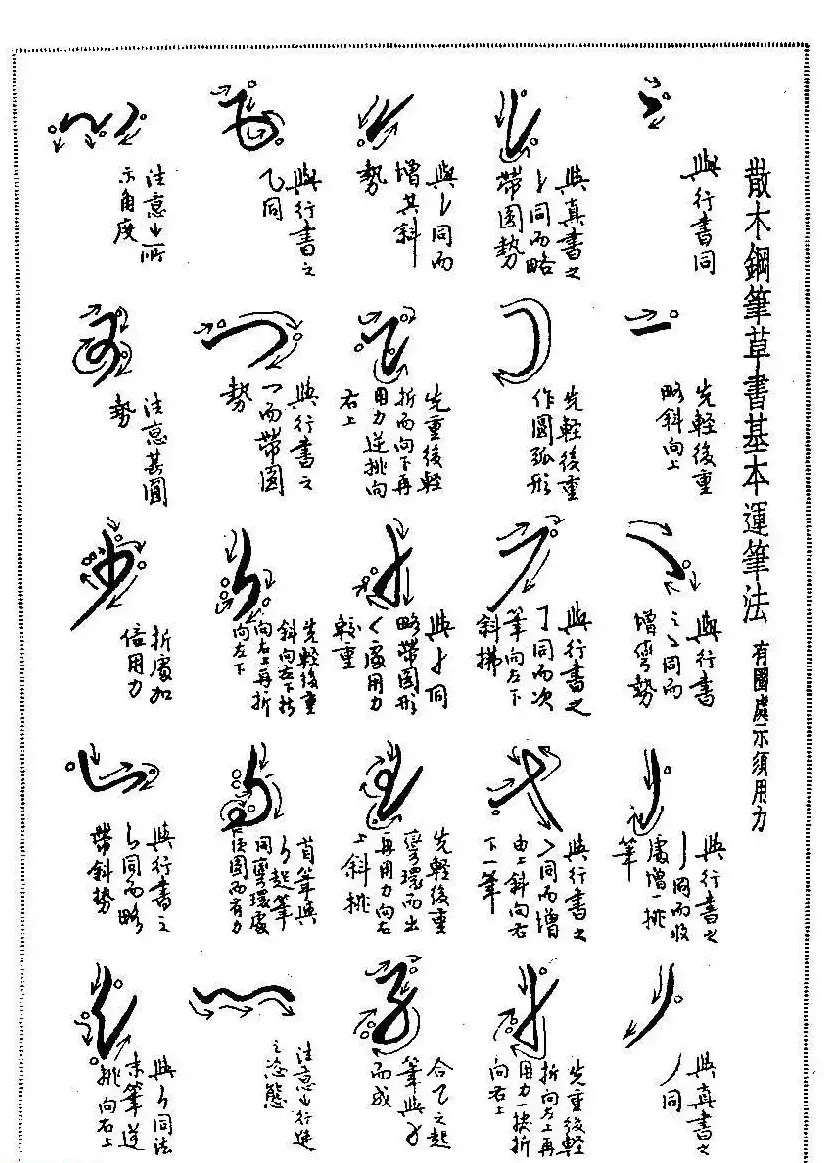 散木鋼筆草書基本運筆法 有圈處示須用力
與行書同
先輕後重
略斜向上
與行書
之乀同而
增彎勢
與行書之
亅同而收
處增一挑
筆
與真書之
丿同
與真書之
㇙同而略
帶圓勢
先輕後重
作圓弧形
與行書之
㇆同而次
筆向左下
斜拂
與行書之
同而增
由上斜向右
下一筆
先重後輕
折向左上再
用力一挫折
向右上
與㇙同而
增其斜
勢
先重後輕
折而向下再
用力逆挑向
右上
與同
略帶圓形
く處用力
較重
先輕後重
彎環而出
再用力向左
上斜挑
合乙之起
筆與
而成
與行書之
乙同
與行書之
乛而帶圓
勢
先輕後重
斜向左下折
向右上再折
向左下
首筆與
起筆
同彎環處
須圓而有力
注意行進
之姿態
注意所
示角度
注意其圓
勢
折處加
倍用力
與行書之
同而略
帶斜勢
與同法
末筆逆
挑向右上